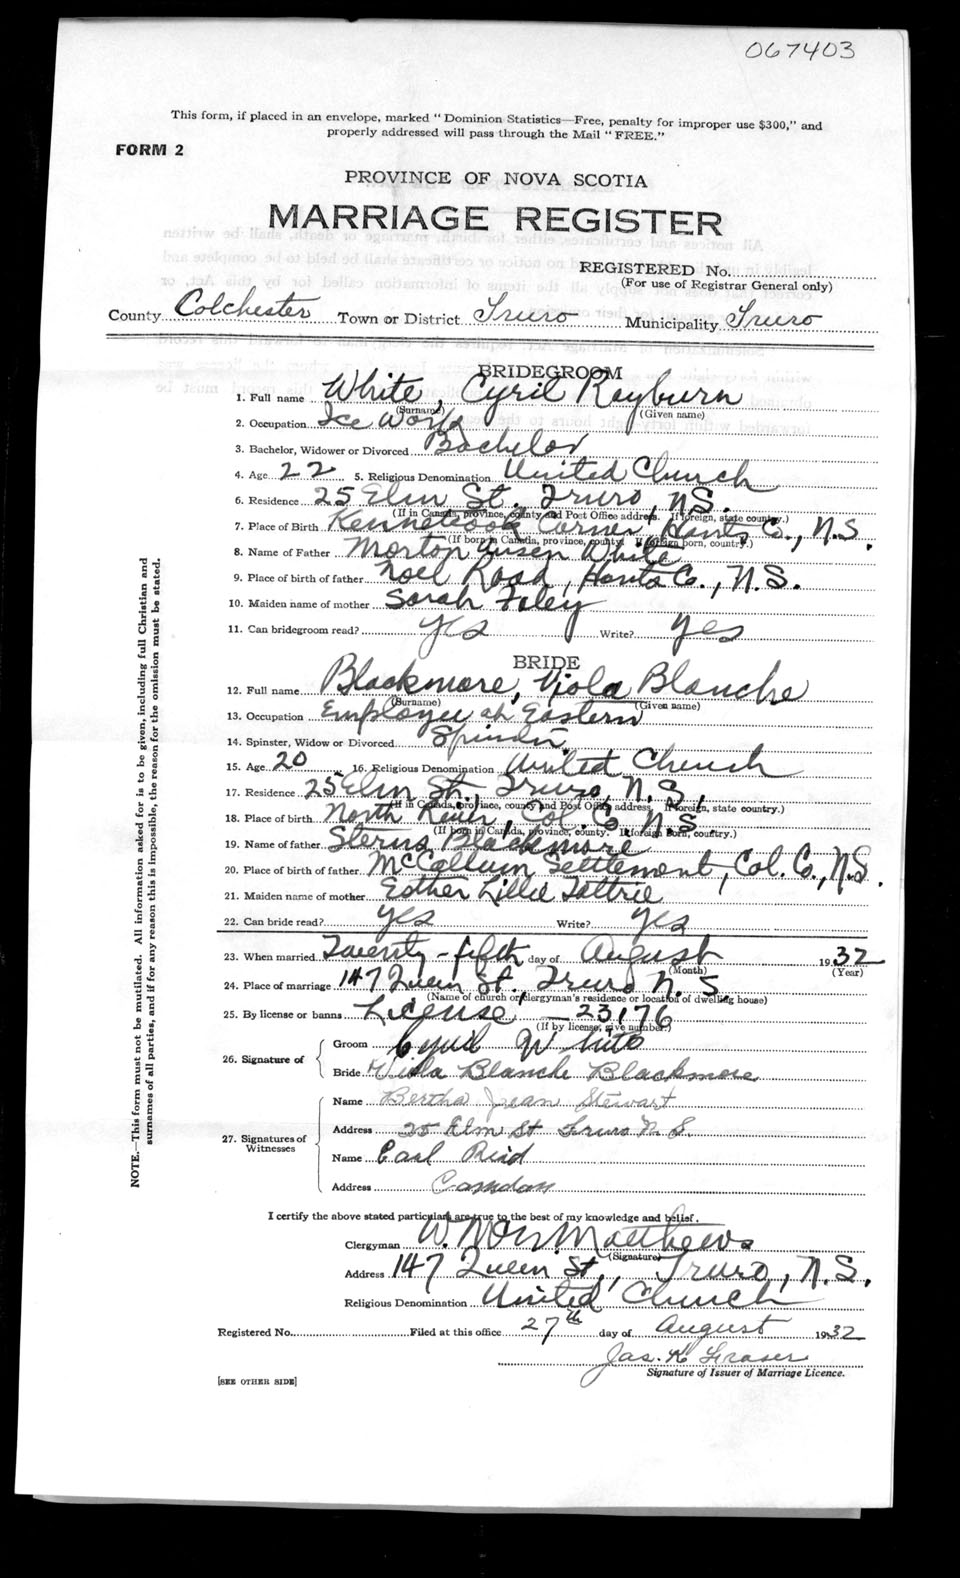 067403
This form, if placed in an envelope, marked "Dominion Statistics—Free, penalty for improper use $300," and
properly addressed will pass through the Mail "FREE."
FORM 2
PROVINCE OF NOVA SCOTIA
MARRIAGE REGISTER
REGISTERED No.
(For use of Registrar General only)
County Colchester Town or District Truro Municipality Truro
BRIDEGROOM
1. Full name White, Cyril Rayburn
(Surname) (Given name)
2. Occupation Ice Works
3. Bachelor, Widower or Divorced Bachelor
4. Age 22 5. Religious Denomination United Church
6. Residence 25 Elm St. Truro, N.S.
(If in Canada, province, county and Post Office address. If foreign, state country.)
7. Place of Birth Kennetcook Corner, Hants Co., N.S.
(If born in Canada, province, county. If foreign born, country.)
8. Name of Father Morton White
9. Place of birth of father Noel Road, Hants Co., N.S.
10. Maiden name of mother Sarah Foley
11. Can bridegroom read? yes Write? yes
BRIDE
12. Full name Blackmore, Viola Blanche
(Surname) (Given name)
13. Occupation Employee at Eastern
14. Spinster, Widow or Divorced
15. Age 20 16. Religious Denomination United Church
17. Residence 25 Elm St., Truro, N.S.
(If in Canada, province, county and Post Office address, If foreign, state country.)
18. Place of birth North River, Col. Co. N.S.
(If born in Canada, province, county. If foreign born, country.)
19. Name of father Blackmore
20. Place of birth of father McCallum Settlement, Col. Co., N.S.
21. Maiden name of mother Esther Lillie Tattrie
22. Can bride read? yes Write? yes
23. When married Twenty-fifth day of August 1932
(Month) (Year)
24. Place of marriage 147 Queen St., Truro N.S
(Name of church or clergyman's residence or location of dwelling house)
25. By license or banns License — 23176
(If by license, give number.)
26. Signature of
Groom Cyril White
Bride Viola Blanche Blackmore
27. Signatures of
Witnesses
Name Bertha Jean Stewart
Address 25 Elm St Truro N.S.
Name Earl Reid
Address Camden
I certify the above stated particulars are true to the best of my knowledge and belief.
Clergyman Matthews
(Signature)
Address 147 Queen St., Truro, N.S.
Religious Denomination United Church
Registered No. Filed at this office 27th day of August 1932
Jas. K Fraser
Signature of Issuer of Marriage Licence.
[SEE OTHER SIDE]
NOTE.—This form must not be mutilated. All information asked for is to be given, including full Christian and
surnames of all parties, and if for any reason this is impossible, the reason for the omission must be stated.